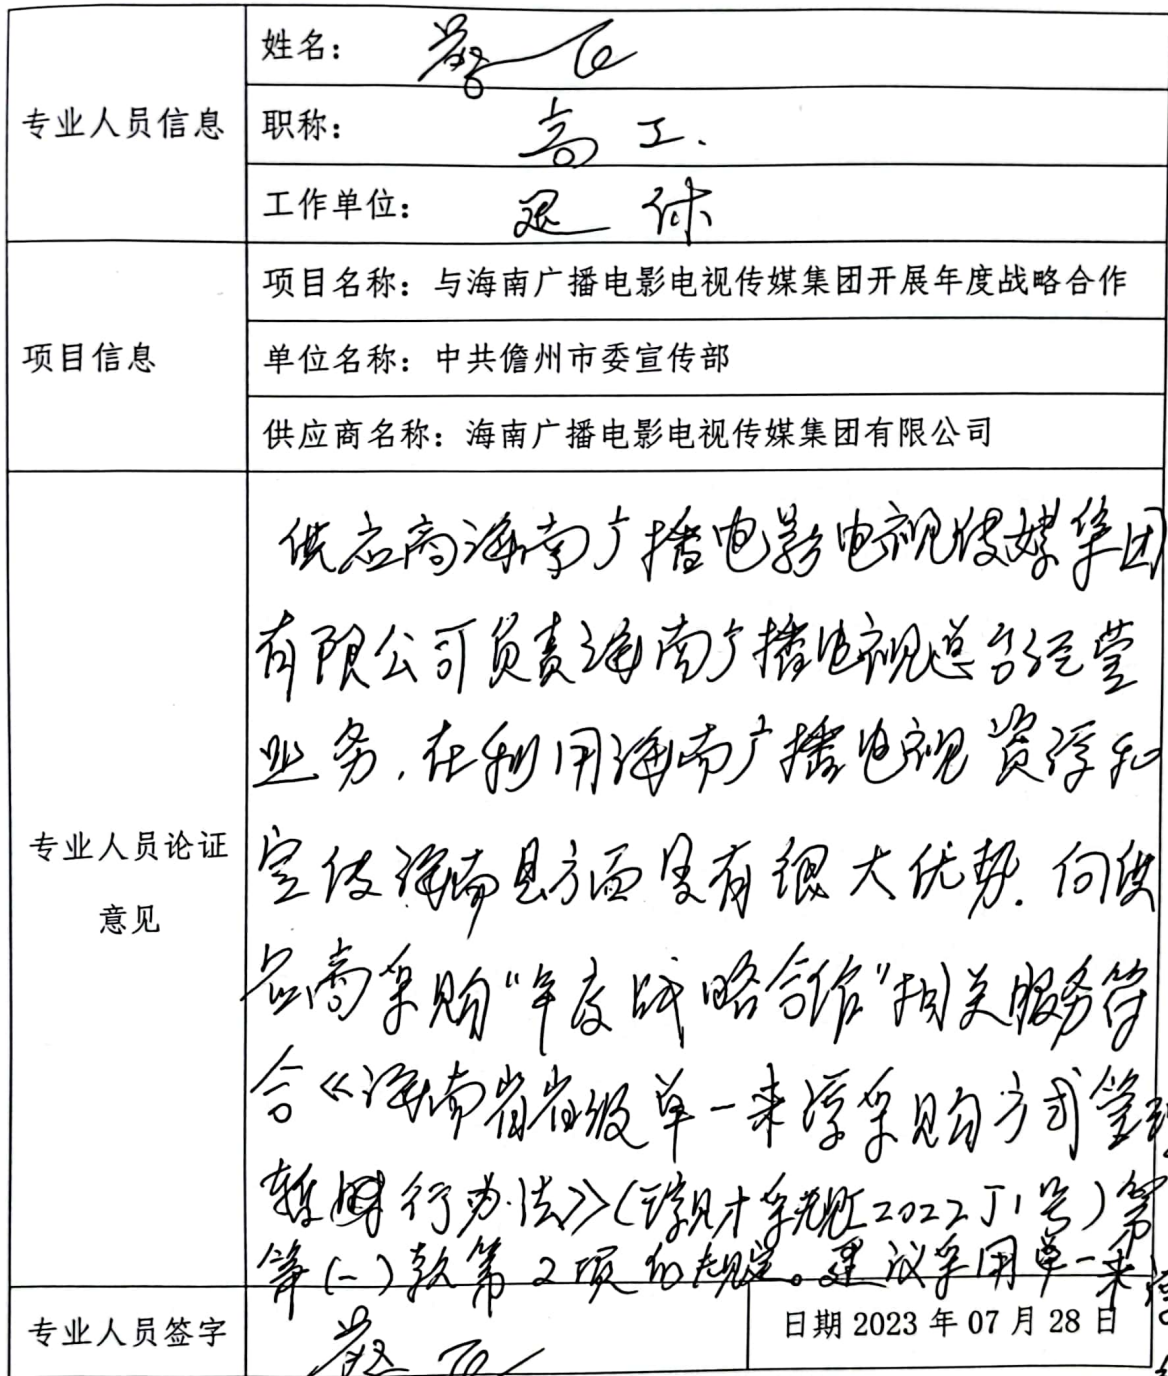 专业人员信息
姓名：
职称： 高工.
工作单位： 退休
项目信息
项目名称：与海南广播电影电视传媒集团开展年度战略合作
单位名称：中共儋州市委宣传部
供应商名称：海南广播电影电视传媒集团有限公司
专业人员论证
意见
供应商海南广播电影电视传媒集团
有限公司负责海南广播电视总台经营
业务,在利用海南广播电视资源和
宣传海南县方面具有很大优势.向供
应商采购“年度战略合作”相关服务符
合《海南省省级单一来源采购方式管理
暂行办法》(琼财采规[2022]1号)第
第(一)款第2项的规定。建议采用单一来源
专业人员签字
日期 2023 年 07 月 28 日